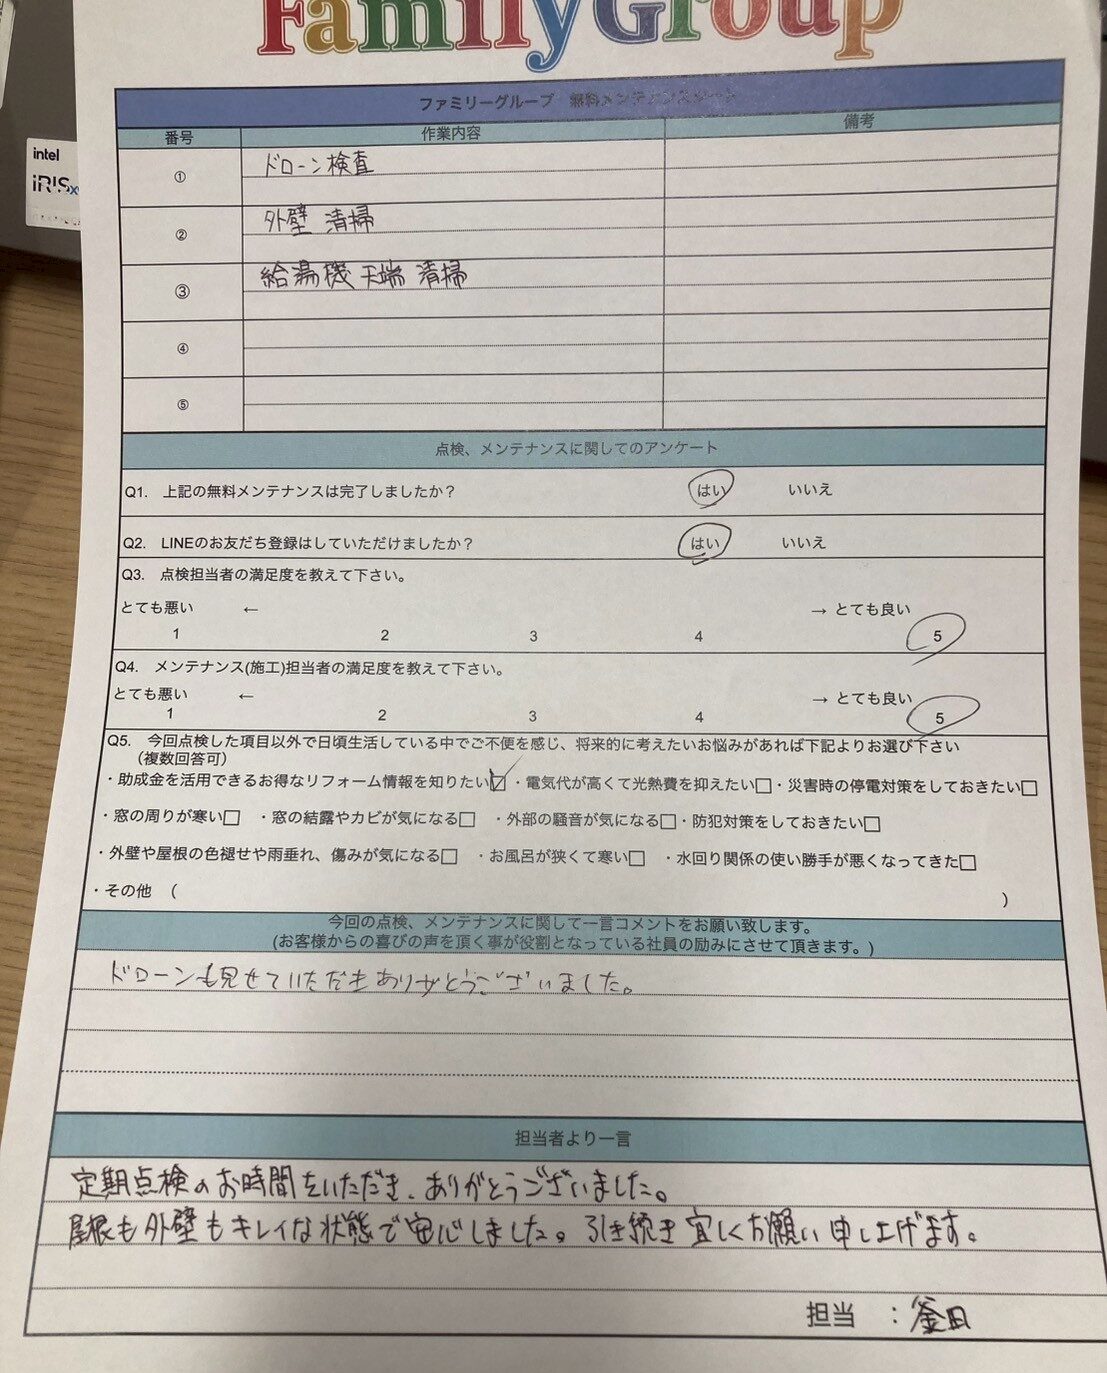 FamilyGroup
ファミリーグループ 無料メンテナンスシート
番号 作業内容 備考
intel
iRISxe
① ドローン検査
② 外壁 清掃
③ 給湯機 天端 清掃
④
⑤
点検、メンテナンスに関してのアンケート
Q1. 上記の無料メンテナンスは完了しましたか? はい いいえ
Q2. LINEのお友だち登録はしていただけましたか? はい いいえ
Q3. 点検担当者の満足度を教えて下さい。
とても悪い ← → とても良い
1 2 3 4 5
Q4. メンテナンス(施工)担当者の満足度を教えて下さい。
とても悪い ← → とても良い
1 2 3 4 5
Q5. 今回点検した項目以外で日頃生活している中でご不便を感じ、将来的に考えたいお悩みがあれば下記よりお選び下さい
(複数回答可)
・助成金を活用できるお得なリフォーム情報を知りたい☑ ・電気代が高くて光熱費を抑えたい□ ・災害時の停電対策をしておきたい□
・窓の周りが寒い□ ・窓の結露やカビが気になる□ ・外部の騒音が気になる□ ・防犯対策をしておきたい□
・外壁や屋根の色褪せや雨垂れ、傷みが気になる□ ・お風呂が狭くて寒い□ ・水回り関係の使い勝手が悪くなってきた□
・その他 ( )
今回の点検、メンテナンスに関して一言コメントをお願い致します。
(お客様からの喜びの声を頂く事が役割となっている社員の励みにさせて頂きます。)
ドローンも見せていただきありがとうございました。
担当者より一言
定期点検のお時間をいただき、ありがとうございました。
屋根も外壁もキレイな状態で安心しました。引き続き宜しくお願い申し上げます。
担当 : 釜田